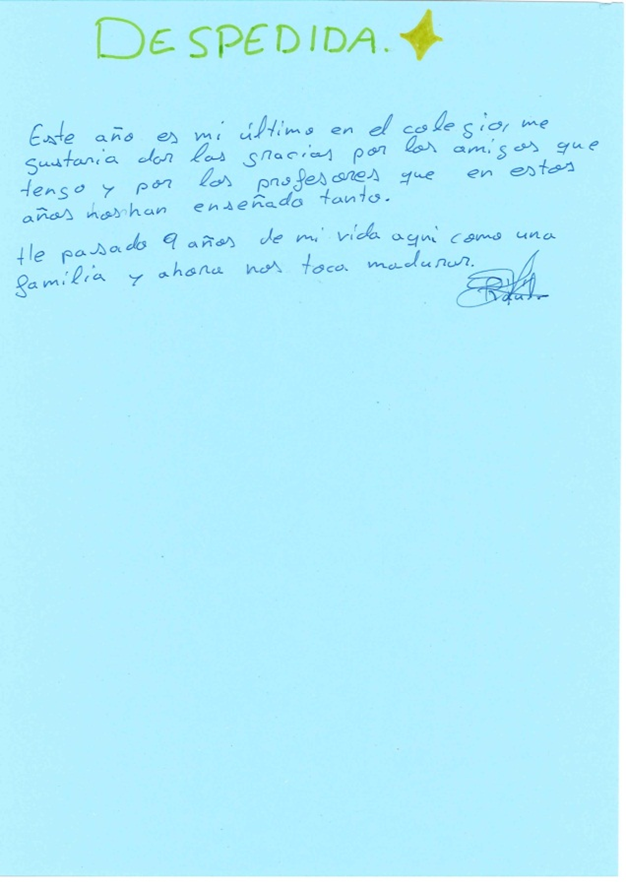 DESPEDIDA.
Este año es mi último en el colegio, me
gustaria dar las gracias por los amigos que
tengo y por los profesores que en estos
años nos han enseñado tanto.
He pasado 9 años de mi vida aqui como una
familia y ahora nos toca madurar.